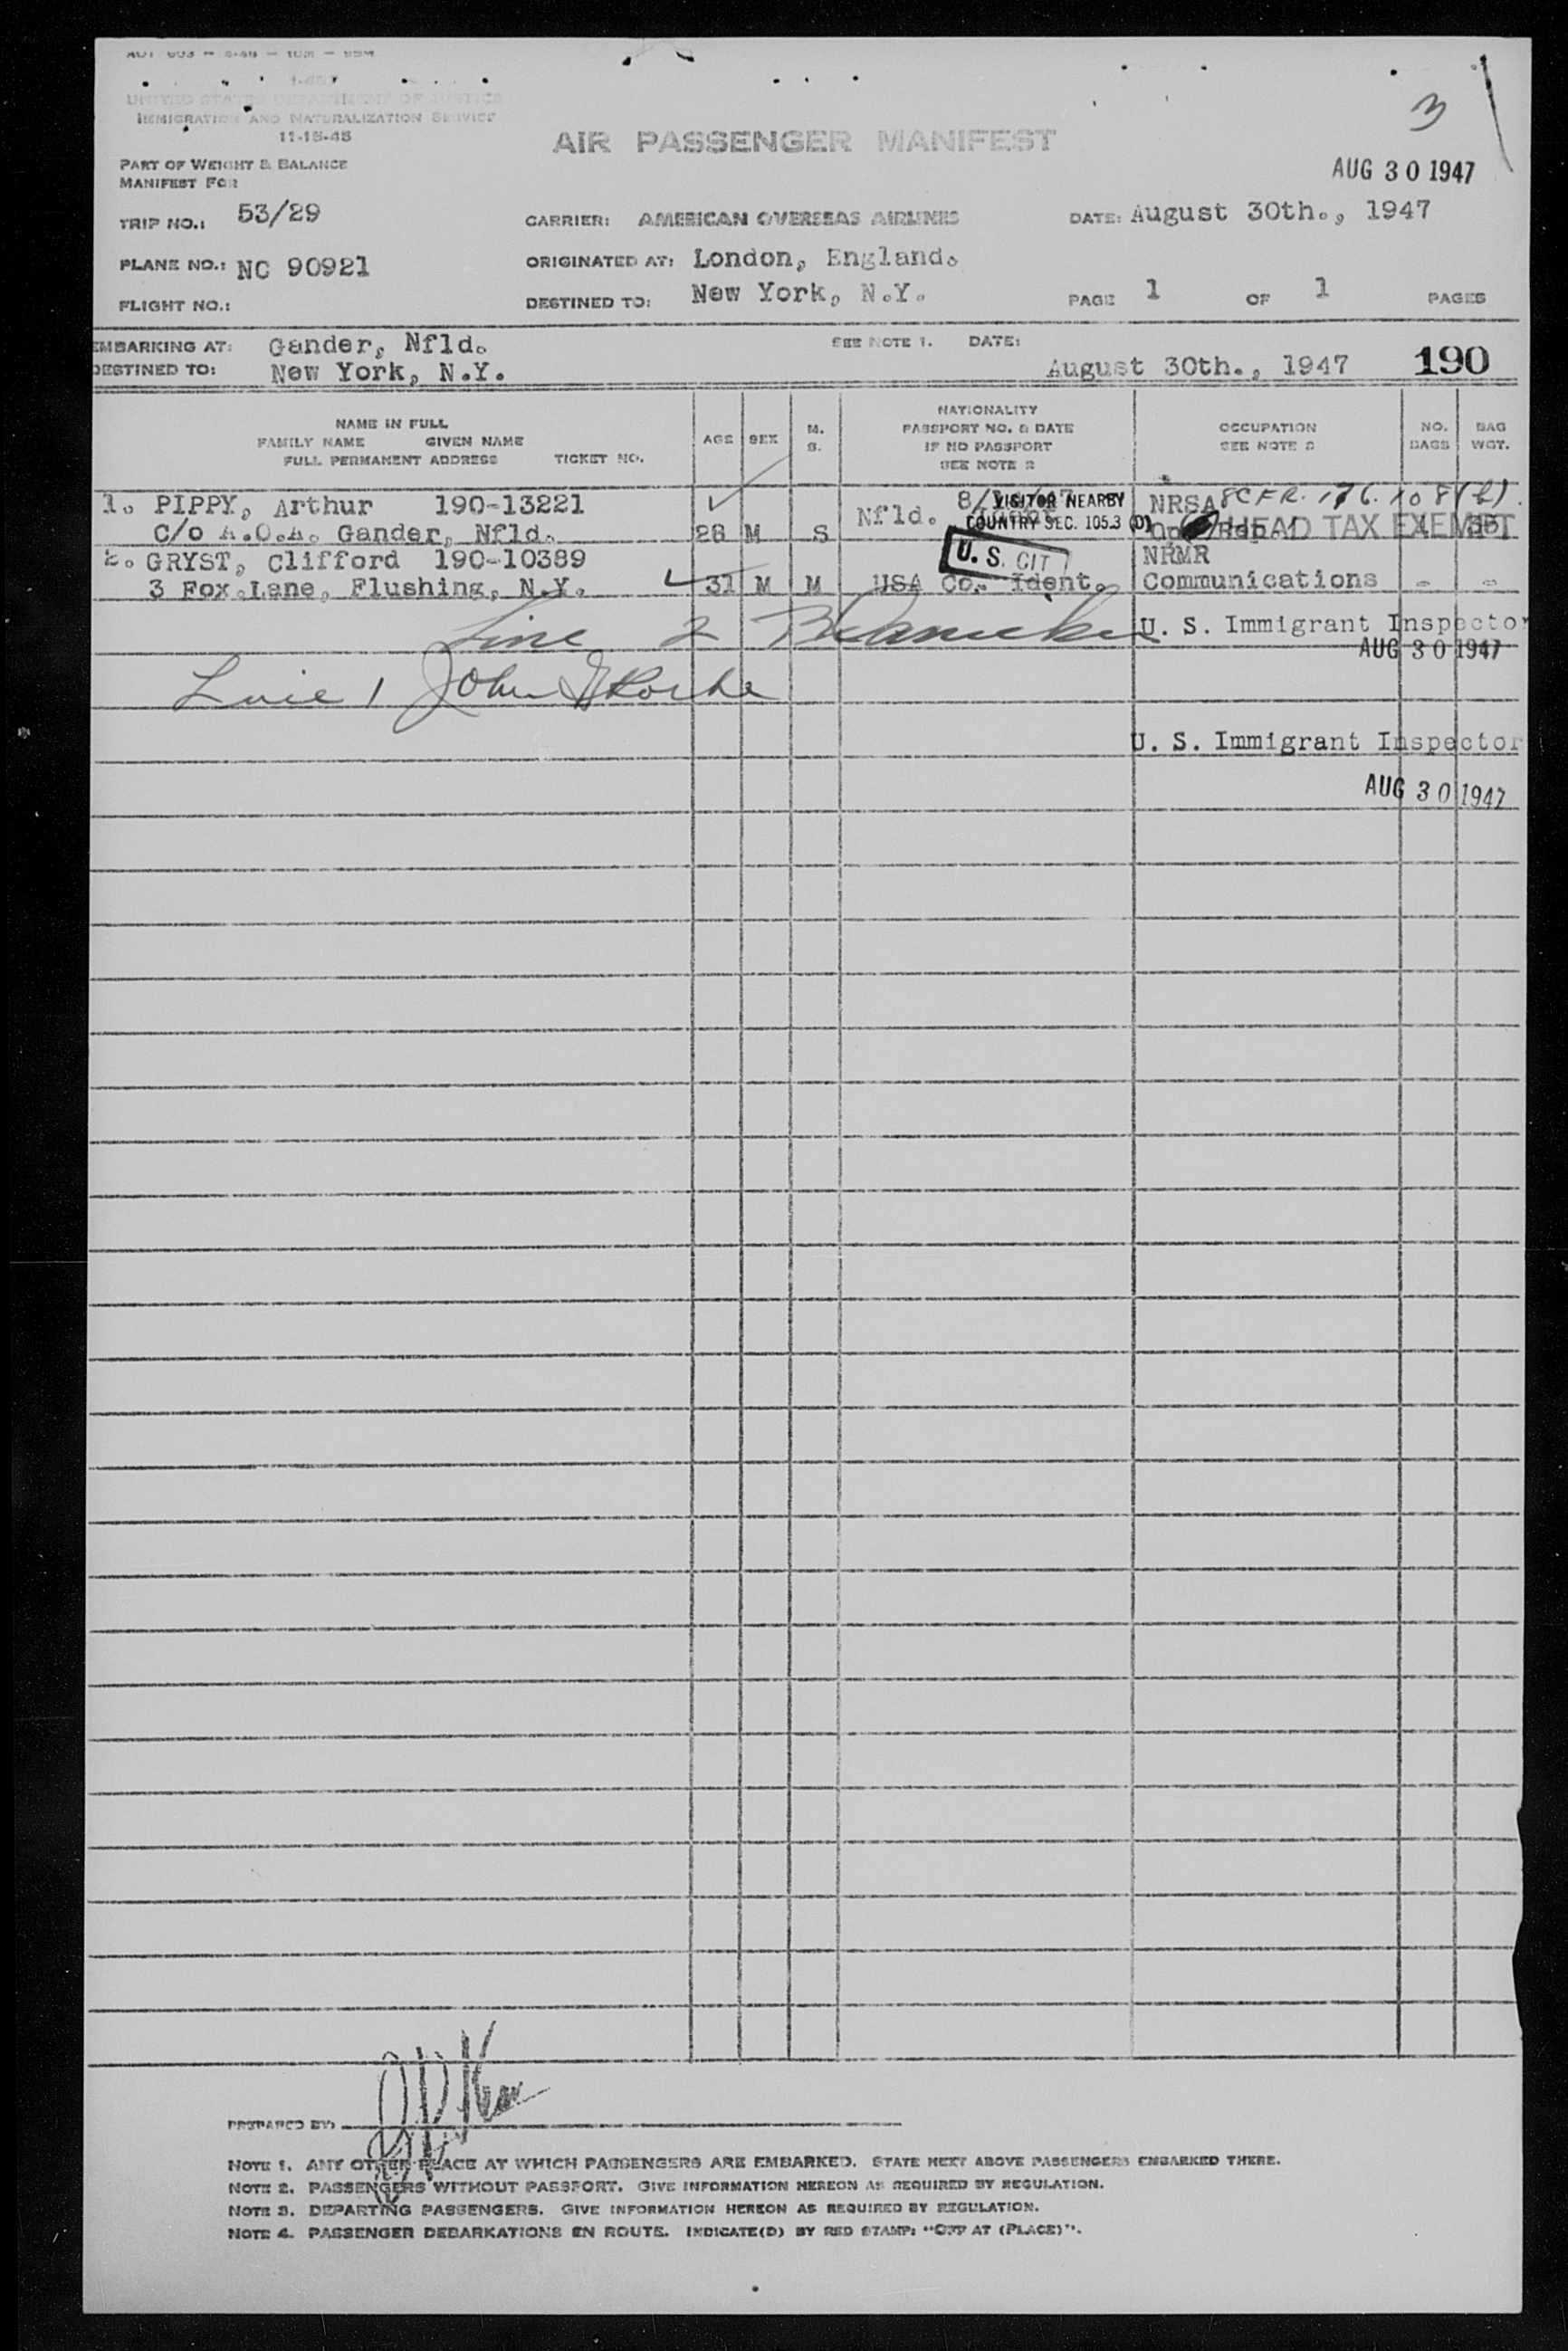 3
UNITED STATES DEPARTMENT OF JUSTICE
IMMIGRATION AND NATURALIZATION SERVICE
11-15-45
AIR PASSENGER MANIFEST
PART OF WEIGHT & BALANCE
MANIFEST FOR
AUG 30 1947
TRIP NO.: 53/29 CARRIER: AMERICAN OVERSEAS AIRLINES DATE: August 30th., 1947
PLANE NO.: NC 90921 ORIGINATED AT: London, England.
FLIGHT NO.: DESTINED TO: New York, N.Y. PAGE 1 OF 1 PAGES
EMBARKING AT: Gander, Nfld. SEE NOTE 1. DATE:
DESTINED TO: New York, N.Y. August 30th., 1947 190
NAME IN FULL
FAMILY NAME GIVEN NAME
FULL PERMANENT ADDRESS TICKET NO.
AGE SEX M. S.
NATIONALITY
PASSPORT NO. & DATE
IF NO PASSPORT
SEE NOTE 2
OCCUPATION
SEE NOTE 2
NO. BAGS
BAG WGT.
1. PIPPY, Arthur 190-13221 VISITOR NEARBY NRSA
C/o A.O.A. Gander, Nfld. 28 M S Nfld. COUNTRY SEC. 105.3 (D) HEAD TAX EXEMPT
2. GRYST, Clifford 190-10389 U. S. CIT NRMR
3 Fox Lane, Flushing, N.Y. 31 M M USA Co. Ident. Communications - -
Line 2 U. S. Immigrant Inspector
AUG 30 1947
Line 1 John Roche
U. S. Immigrant Inspector
AUG 30 1947
PREPARED BY:
NOTE 1. ANY OTHER PLACE AT WHICH PASSENGERS ARE EMBARKED. STATE NEXT ABOVE PASSENGERS EMBARKED THERE.
NOTE 2. PASSENGERS WITHOUT PASSPORT. GIVE INFORMATION HEREON AS REQUIRED BY REGULATION.
NOTE 3. DEPARTING PASSENGERS. GIVE INFORMATION HEREON AS REQUIRED BY REGULATION.
NOTE 4. PASSENGER DEBARKATIONS EN ROUTE. INDICATE(D) BY RED STAMP: "OFF AT (PLACE)".